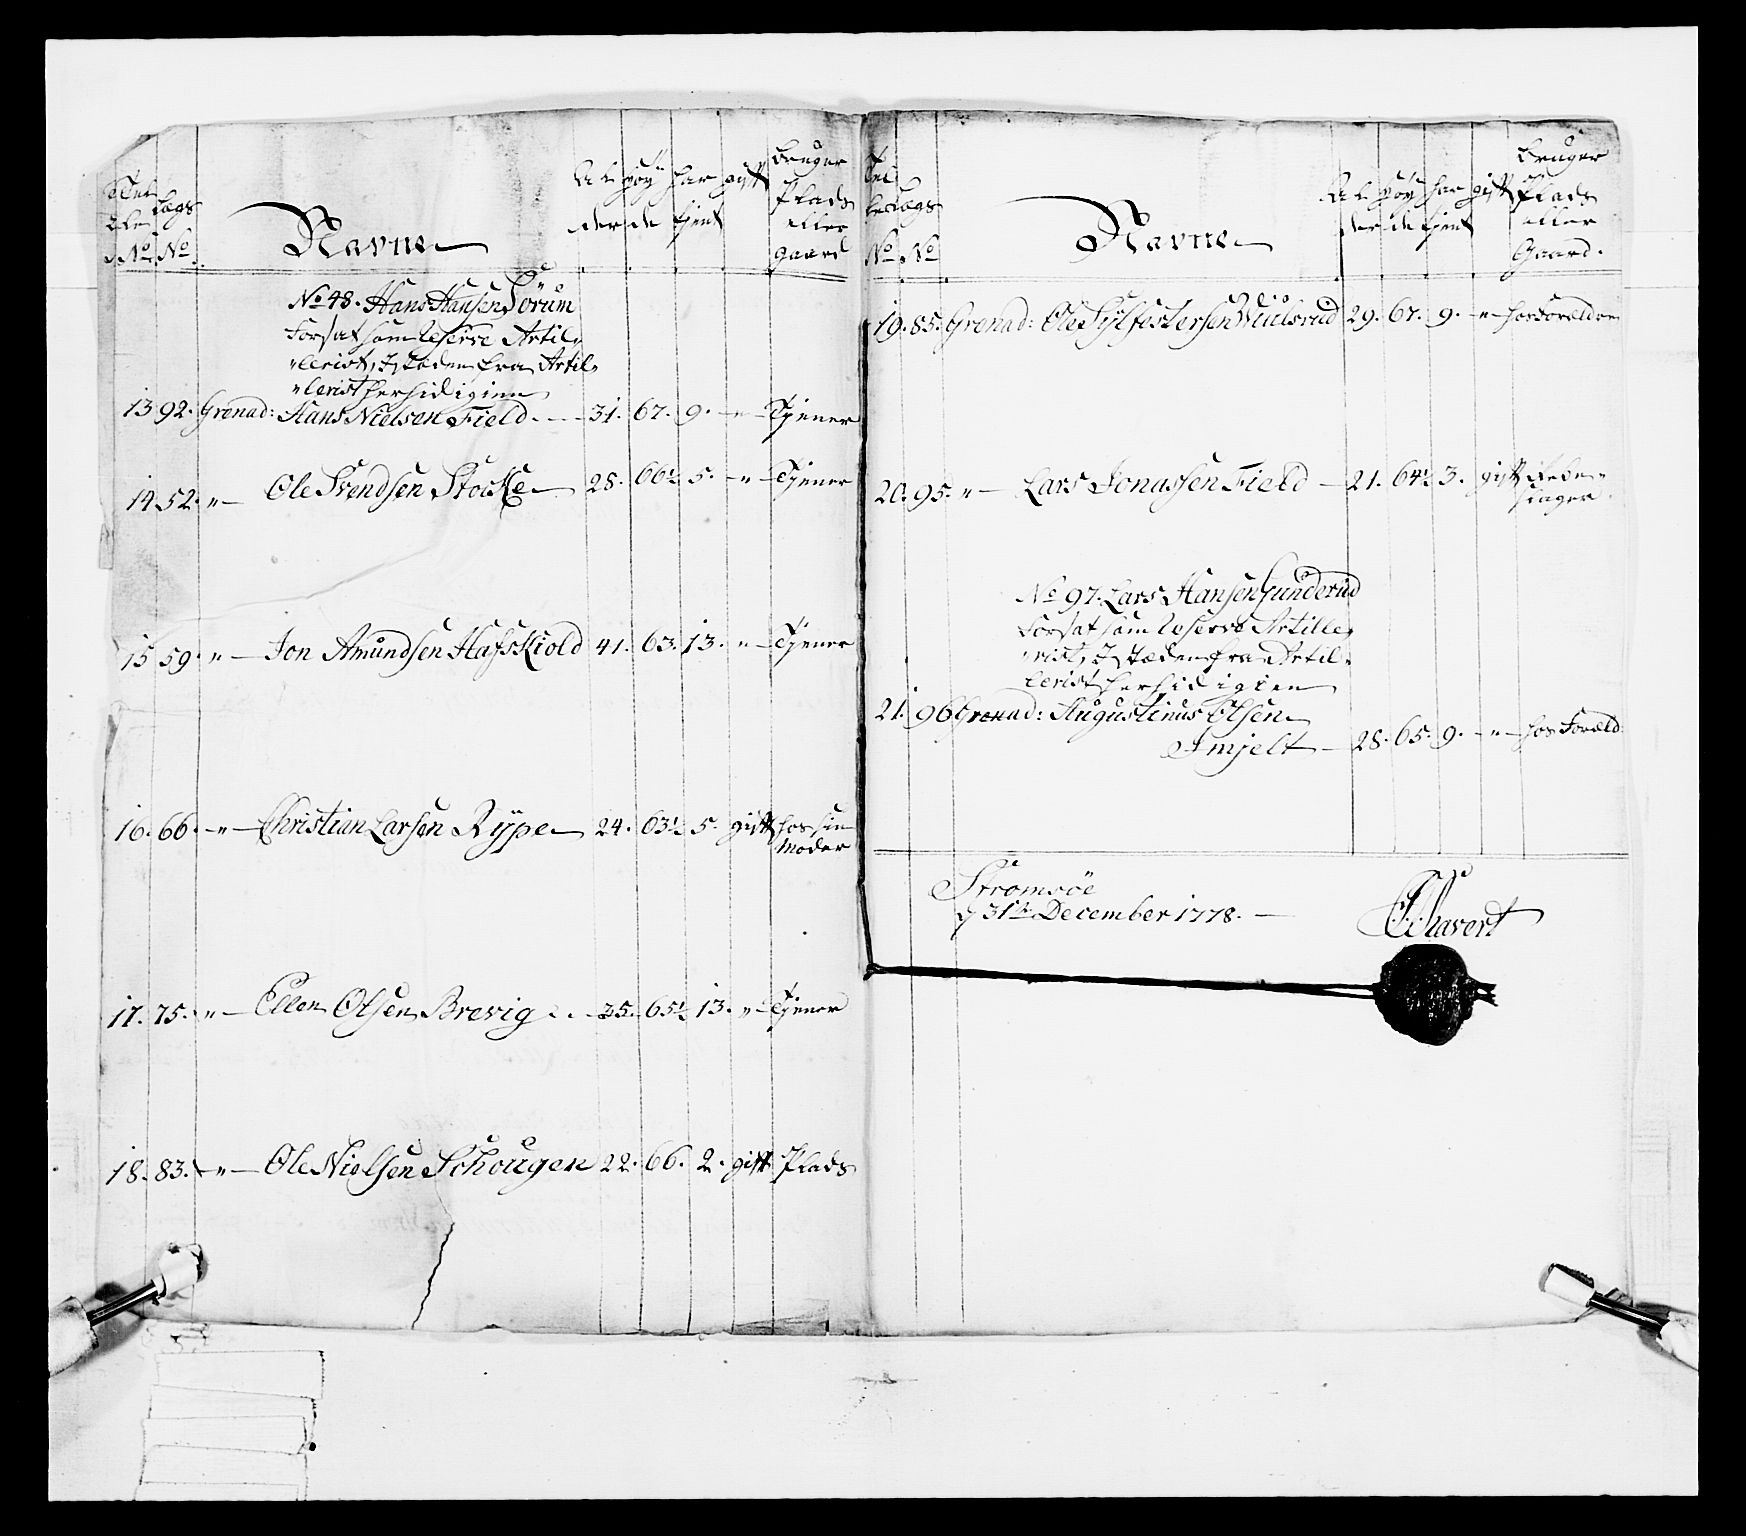 Lægs
No No
Navne
Al der
höy de
har tjent
gift
bruger Plads eller gaard
No 48. Hans Hansen Sörum
forsat som Reserve Artil=
=lerist, I stæden fra Artil=
=lerist herhid igien
13. 92. Grenad: Hans Nielsen Field 31. 67. 9. " Tjener
14. 52. " Ole Svendsen Stocke 28. 66½ 5. " Tjener
15. 59. " Jon Amundsen Hafskiold 41. 63. 13. " Tjener
16. 66. " Christian Larsen Rÿpe 24. 63½ 5. gift hos sin
Moder
17. 75. " Ellen Olsen Brevig 35. 65½ 13. " Tjener
18. 83. " Ole Nielsen Schougen 22. 66. 2. gift Plads
Lægs
No No
Navne
Al der
höy de
har tjent
gift
bruger Plads eller Gaard.
19. 85. Grenad: Ole Sylfestersen 29. 67. 9. " hos Forældre
20. 95. " Lars Jonassen Field 21. 64½ 3. gift
No 97. Lars Hansen Gunderud
forsat som Reserve Artille=
=rist, I stæden fra Artil=
lerist herhid igien
21. 96 Grenad: Augustinus Olsen
Imjelt 28. 65. 9. " hos Foræld:
Strömsöe
d 31te December 1778.